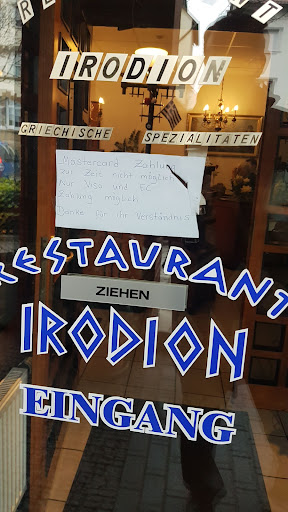 IRODION
GRIECHISCHE SPEZIALITÄTEN
Mastercard Zahlung
zur Zeit nicht möglich
Nur Visa und EC
Zahlung möglich
Danke für ihr Verständnis
RESTAURANT
ZIEHEN
IRODION
EINGANG